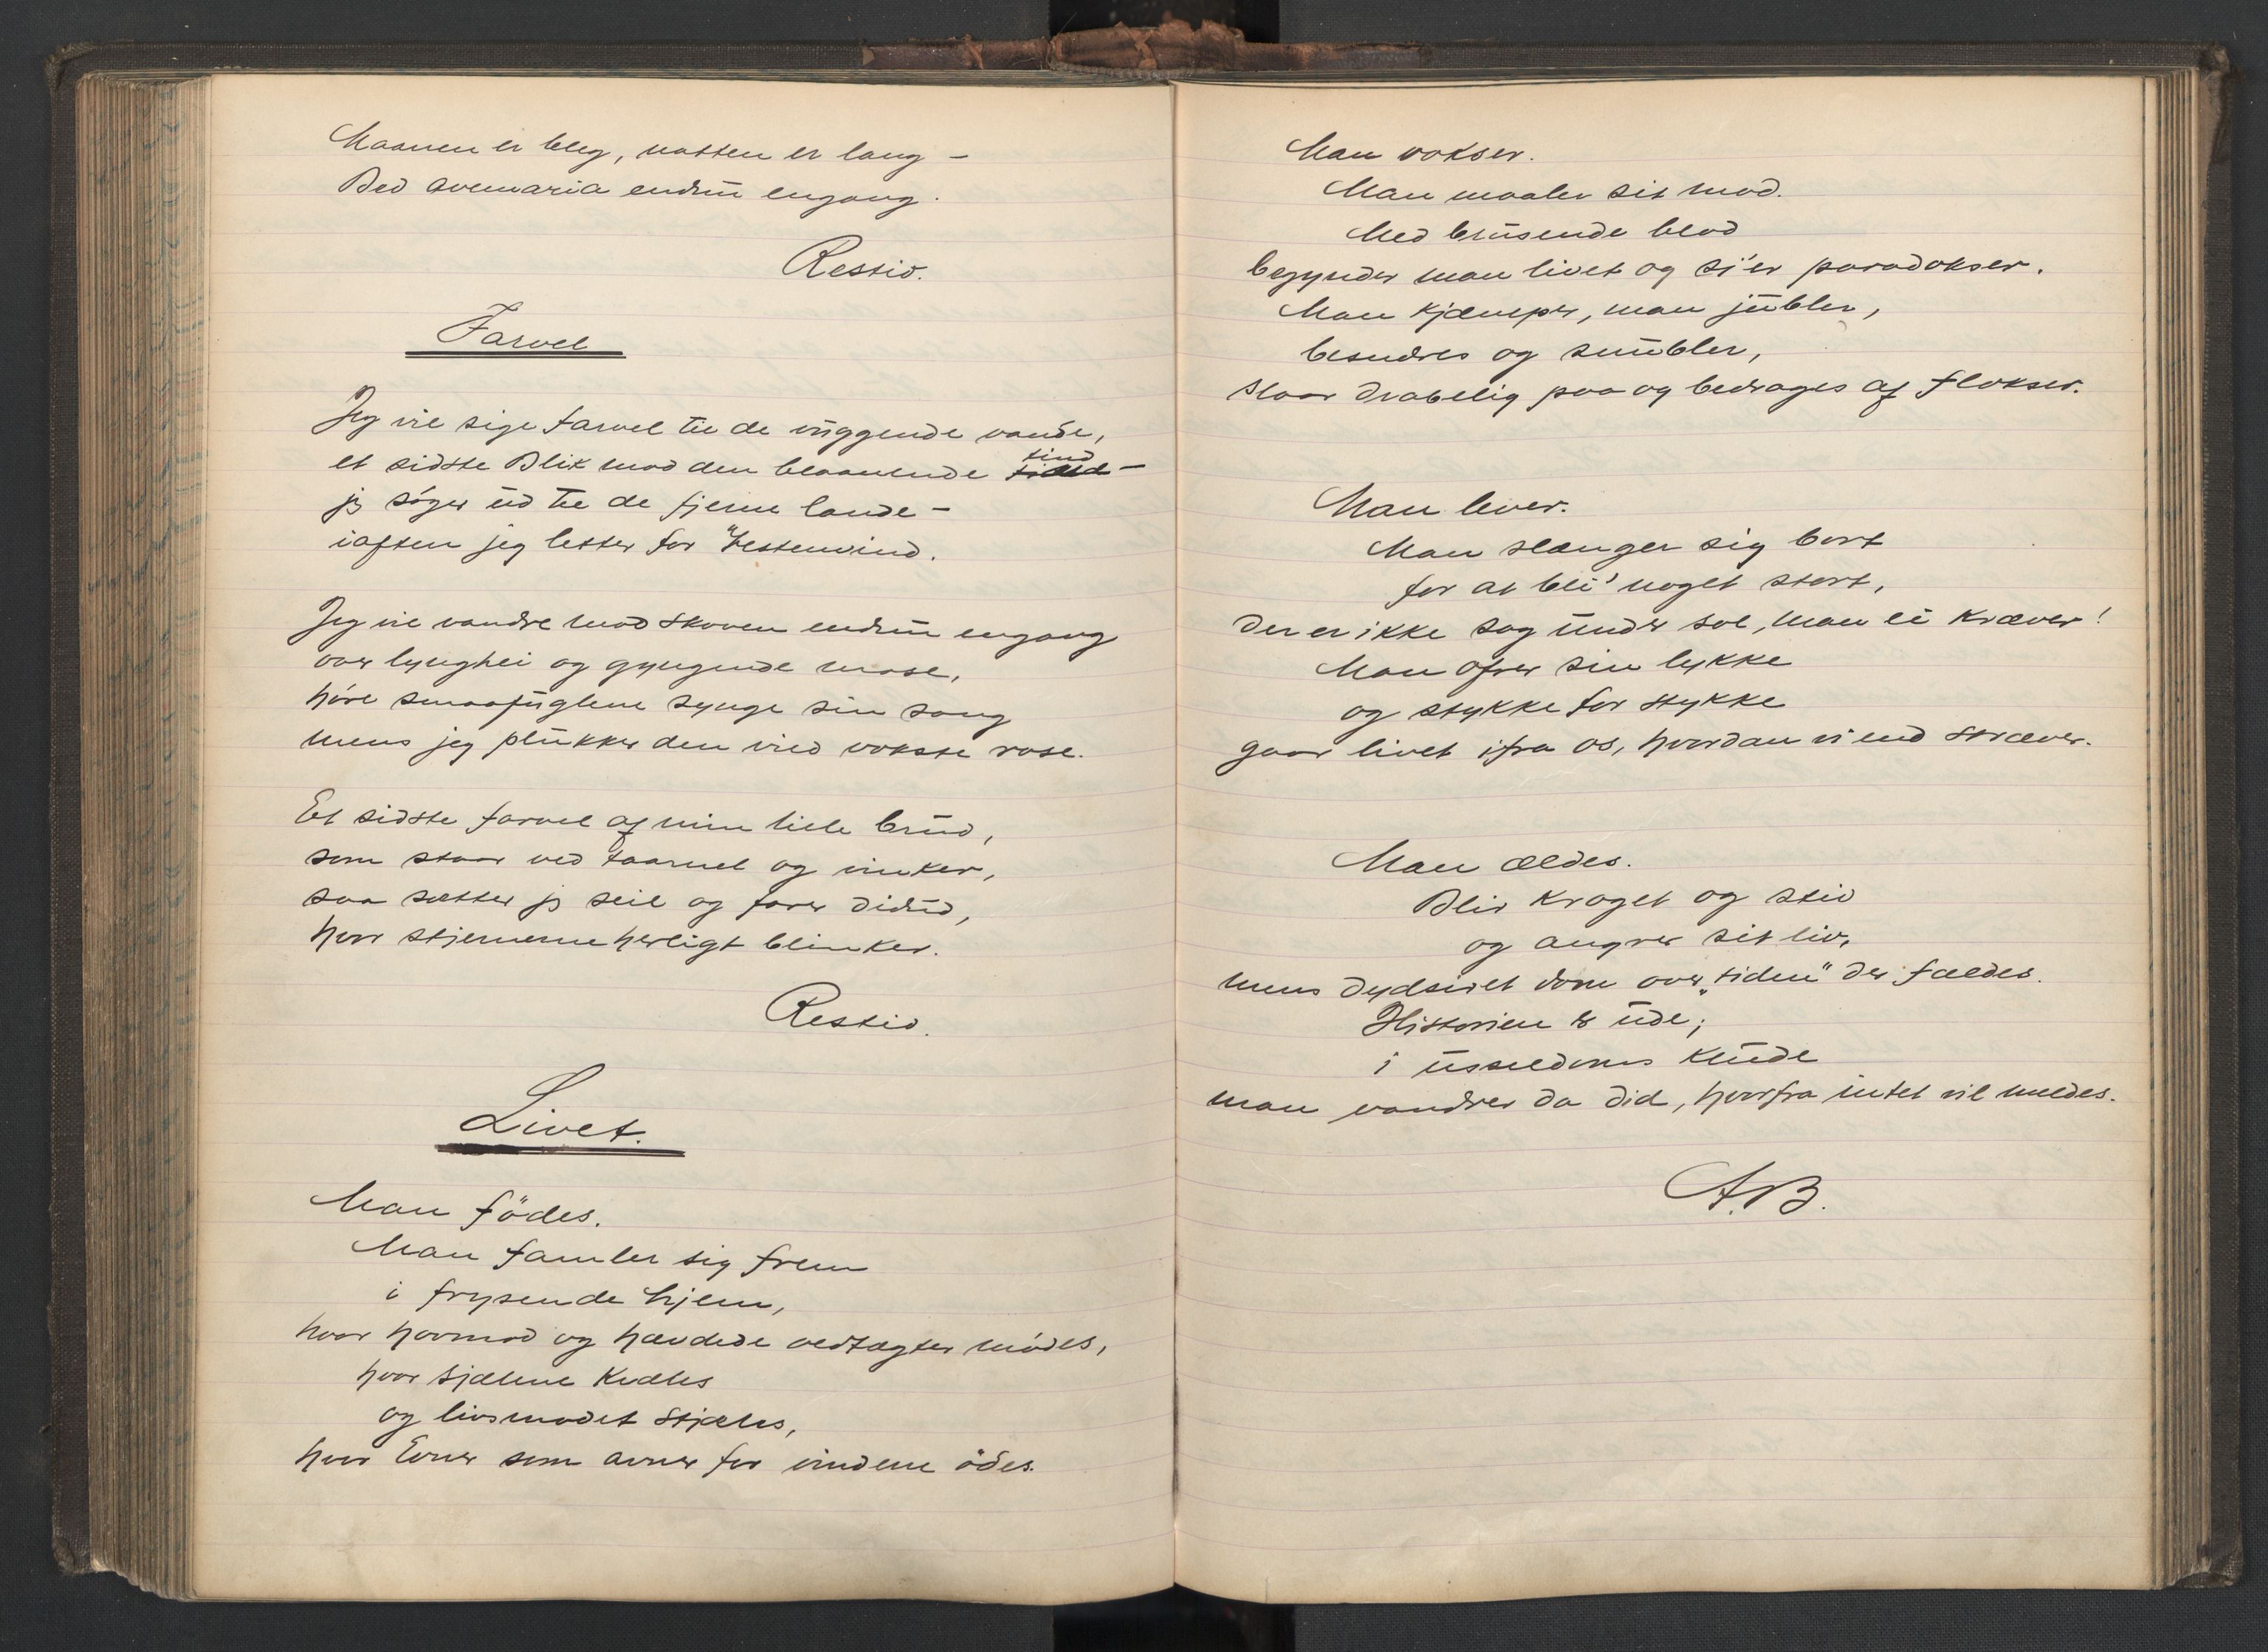 Maanen er bleg, natten er lang –
Bed avemaria endnu engang.
Restio.
Farvel
Jeg vil sige farvel til de vuggende vande,
et sidste Blik mod den blaanende tind –
jeg søger ud til de fjerne lande –
iaften jeg letter for Vestenvind.
Jeg vil vandre mod skoven endnu engang
over lynghei og gyngende mose,
høre smaafuglene synge sin sang
mens jeg plukker den vild vokste rose.
Et sidste farvel af min lille brud,
som staar ved taarnet og vinker,
saa sætter jeg seil og farer didud,
hvor stjernerne herligt blinker.
Restio.
Livet.
Man födes.
Man famler sig frem
i frysende hjem,
hvor hovmod og hævdede vedtægter mødes,
hvor sjælene kvæles
og livsmodet stjæles,
hvor Evner som avner for vindene ödes.
Man vokser.
Man maaler sit mod.
Med brusende blod
begynder man livet og si'er paradokser.
Man kjæmper, man jubler,
besudres og sumbler,
slaar drabelig paa og bedrages af flokser.
Man lever.
Man slænger sig bort
for at bli' noget stort,
der er ikke sag under sol, man ei kræver!
Man ofrer sin lykke
og stykke for stykke
gaar livet ifra os, hvordan vi end stræver.
Man ældes.
Blir kroget og stiv
og angrer sit liv,
mens dydsiret dom over „tiden" der fældes.
Historien er ude;
i usseldoms klude
man vandrer da did, hvorfra intet vil meldes.
A.B.